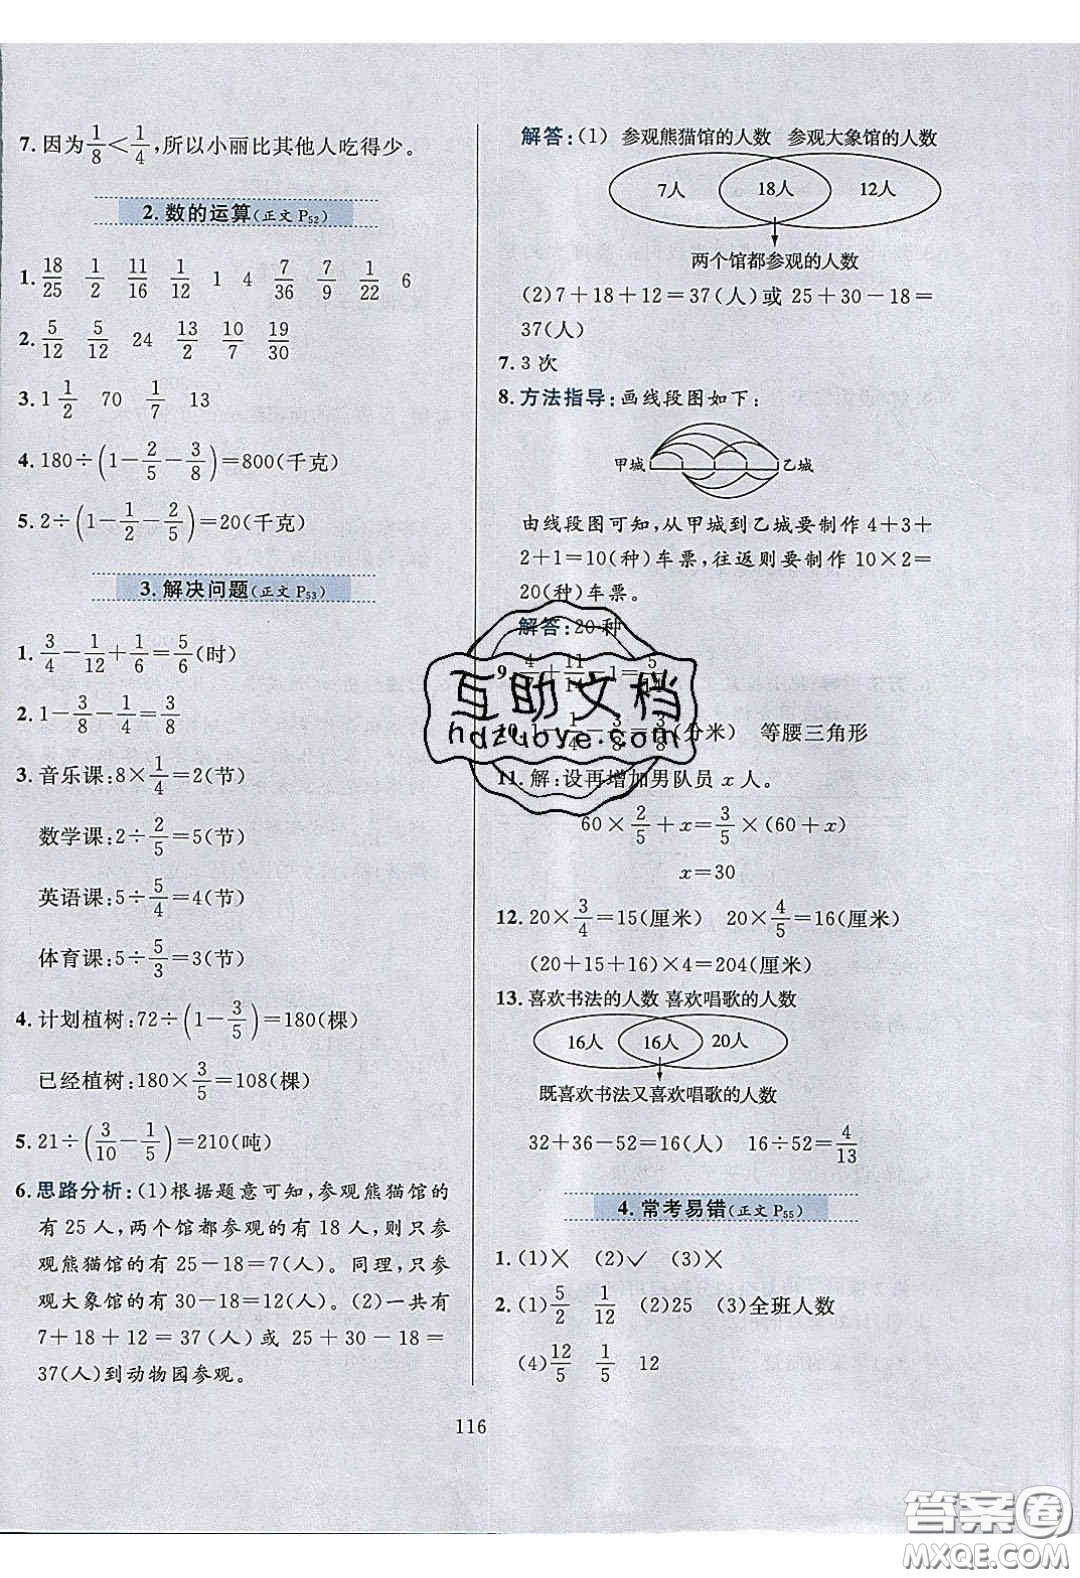 7. 因为1/8<1/4,所以小丽比其他人吃得少。
2. 数的运算(正文 P52)
1. 18/25 1/2 11/16 1/12 1 4 7/36 7/9 1/22 6
2. 5/12 5/12 24 13/2 10/7 19/30
3. 1 1/2 70 1/7 13
4. 180÷(1-2/5-3/8)=800(千克)
5. 2÷(1-1/2-2/5)=20(千克)
3. 解决问题(正文 P53)
1. 3/4-1/12+1/6=5/6(时)
2. 1-3/8-1/4=3/8
3. 音乐课:8×1/4=2(节)
数学课:2÷2/5=5(节)
英语课:5÷5/4=4(节)
体育课:5÷5/3=3(节)
4. 计划植树:72÷(1-3/5)=180(棵)
已经植树:180×3/5=108(棵)
5. 21÷(3/10-1/5)=210(吨)
6. 思路分析:(1)根据题意可知,参观熊猫馆的
有 25 人,两个馆都参观的有 18 人,则只参
观熊猫馆的有 25-18=7(人)。同理,只参
观大象馆的有 30-18=12(人)。(2)一共有
7+18+12=37(人)或 25+30-18=
37(人)到动物园参观。
解答:(1) 参观熊猫馆的人数 参观大象馆的人数
7人 18人 12人
两个馆都参观的人数
(2)7+18+12=37(人)或 25+30-18=
37(人)
7. 3 次
8. 方法指导:画线段图如下:
甲城 乙城
由线段图可知,从甲城到乙城要制作 4+3+
2+1=10(种)车票,往返则要制作 10×2=
20(种)车票。
解答:20 种
9.
10. (分米) 等腰三角形
11. 解:设再增加男队员 x 人。
60×2/5+x=3/5×(60+x)
x=30
12. 20×3/4=15(厘米) 20×4/5=16(厘米)
(20+15+16)×4=204(厘米)
13. 喜欢书法的人数 喜欢唱歌的人数
16人 16人 20人
既喜欢书法又喜欢唱歌的人数
32+36-52=16(人) 16÷52=4/13
4. 常考易错(正文 P55)
1. (1)× (2)✓ (3)×
2. (1)5/2 1/12 (2)25 (3)全班人数
(4)12/5 1/5 12
116
互助文档
hdzuoye.com
答案圈
MXQE.COM